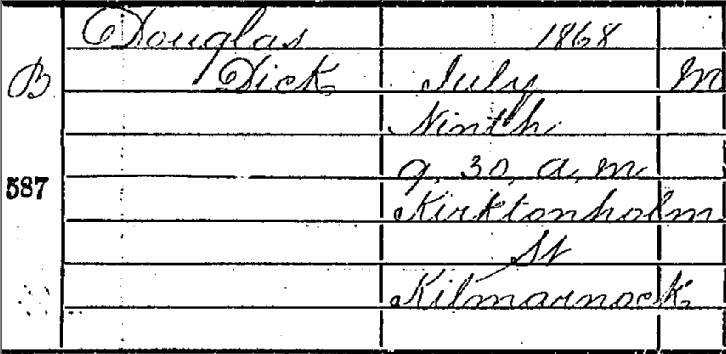 Douglas 1868
B Dick July M
Ninth
9. 30, a, m
587 Kirktonholm
St
Kilmarnock